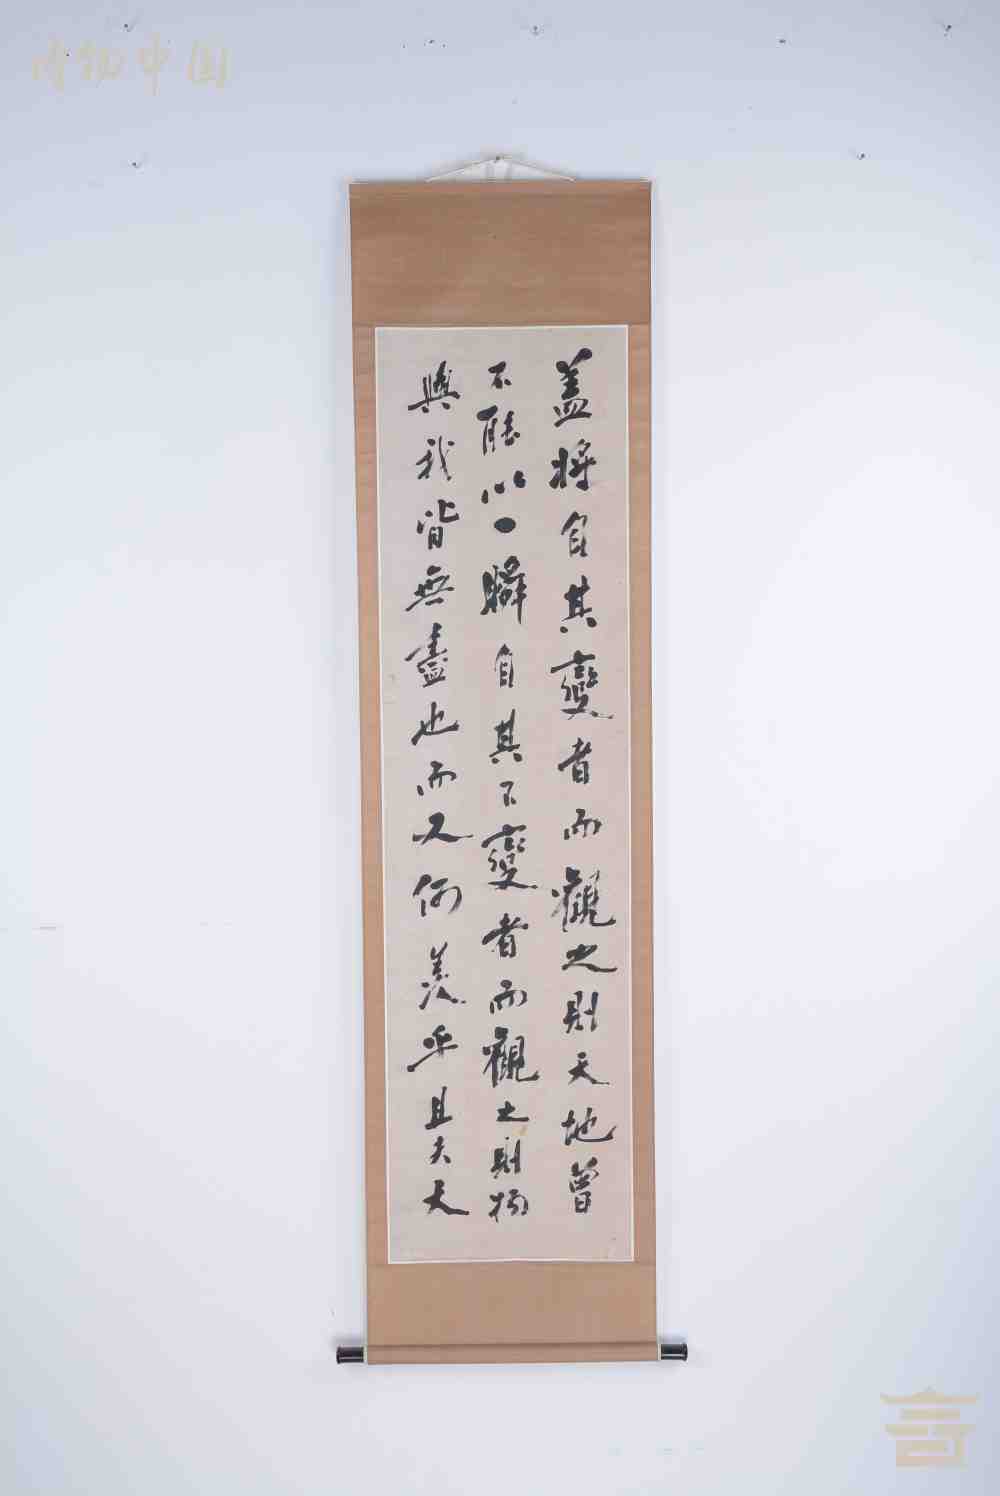 博物中国
盖将自其變者而觀之則天地曾
不能以一瞬自其不變者而觀之則物
與我皆無盡也而又何羡乎且夫天